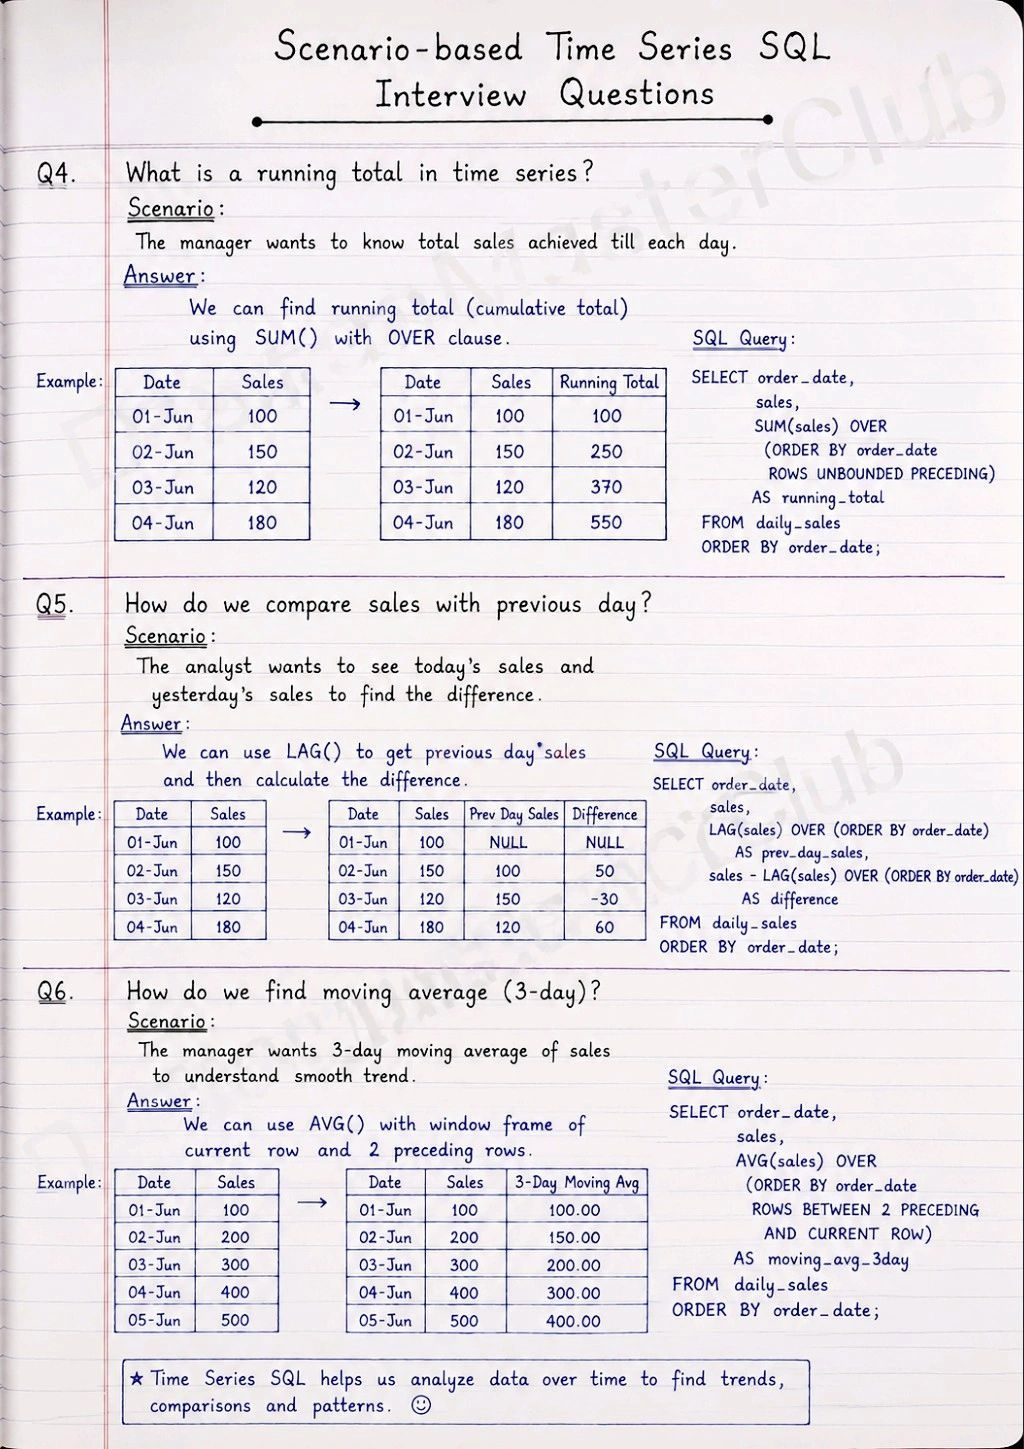 Scenario-based Time Series SQL
Interview Questions
Q4. What is a running total in time series?
Scenario:
The manager wants to know total sales achieved till each day.
Answer:
We can find running total (cumulative total)
using SUM() with OVER clause.
Example:
Date Sales
01-Jun 100
02-Jun 150
03-Jun 120
04-Jun 180
→
Date Sales Running Total
01-Jun 100 100
02-Jun 150 250
03-Jun 120 370
04-Jun 180 550
SQL Query:
SELECT order_date,
sales,
SUM(sales) OVER
(ORDER BY order_date
ROWS UNBOUNDED PRECEDING)
AS running_total
FROM daily_sales
ORDER BY order_date;
Q5. How do we compare sales with previous day?
Scenario:
The analyst wants to see today's sales and
yesterday's sales to find the difference.
Answer:
We can use LAG() to get previous day sales
and then calculate the difference.
Example:
Date Sales
01-Jun 100
02-Jun 150
03-Jun 120
04-Jun 180
→
Date Sales Prev Day Sales Difference
01-Jun 100 NULL NULL
02-Jun 150 100 50
03-Jun 120 150 -30
04-Jun 180 120 60
SQL Query:
SELECT order_date,
sales,
LAG(sales) OVER (ORDER BY order_date)
AS prev_day_sales,
sales - LAG(sales) OVER (ORDER BY order_date)
AS difference
FROM daily_sales
ORDER BY order_date;
Q6. How do we find moving average (3-day)?
Scenario:
The manager wants 3-day moving average of sales
to understand smooth trend.
Answer:
We can use AVG() with window frame of
current row and 2 preceding rows.
Example:
Date Sales
01-Jun 100
02-Jun 200
03-Jun 300
04-Jun 400
05-Jun 500
→
Date Sales 3-Day Moving Avg
01-Jun 100 100.00
02-Jun 200 150.00
03-Jun 300 200.00
04-Jun 400 300.00
05-Jun 500 400.00
SQL Query:
SELECT order_date,
sales,
AVG(sales) OVER
(ORDER BY order_date
ROWS BETWEEN 2 PRECEDING
AND CURRENT ROW)
AS moving_avg_3day
FROM daily_sales
ORDER BY order_date;
★ Time Series SQL helps us analyze data over time to find trends,
comparisons and patterns. ☺